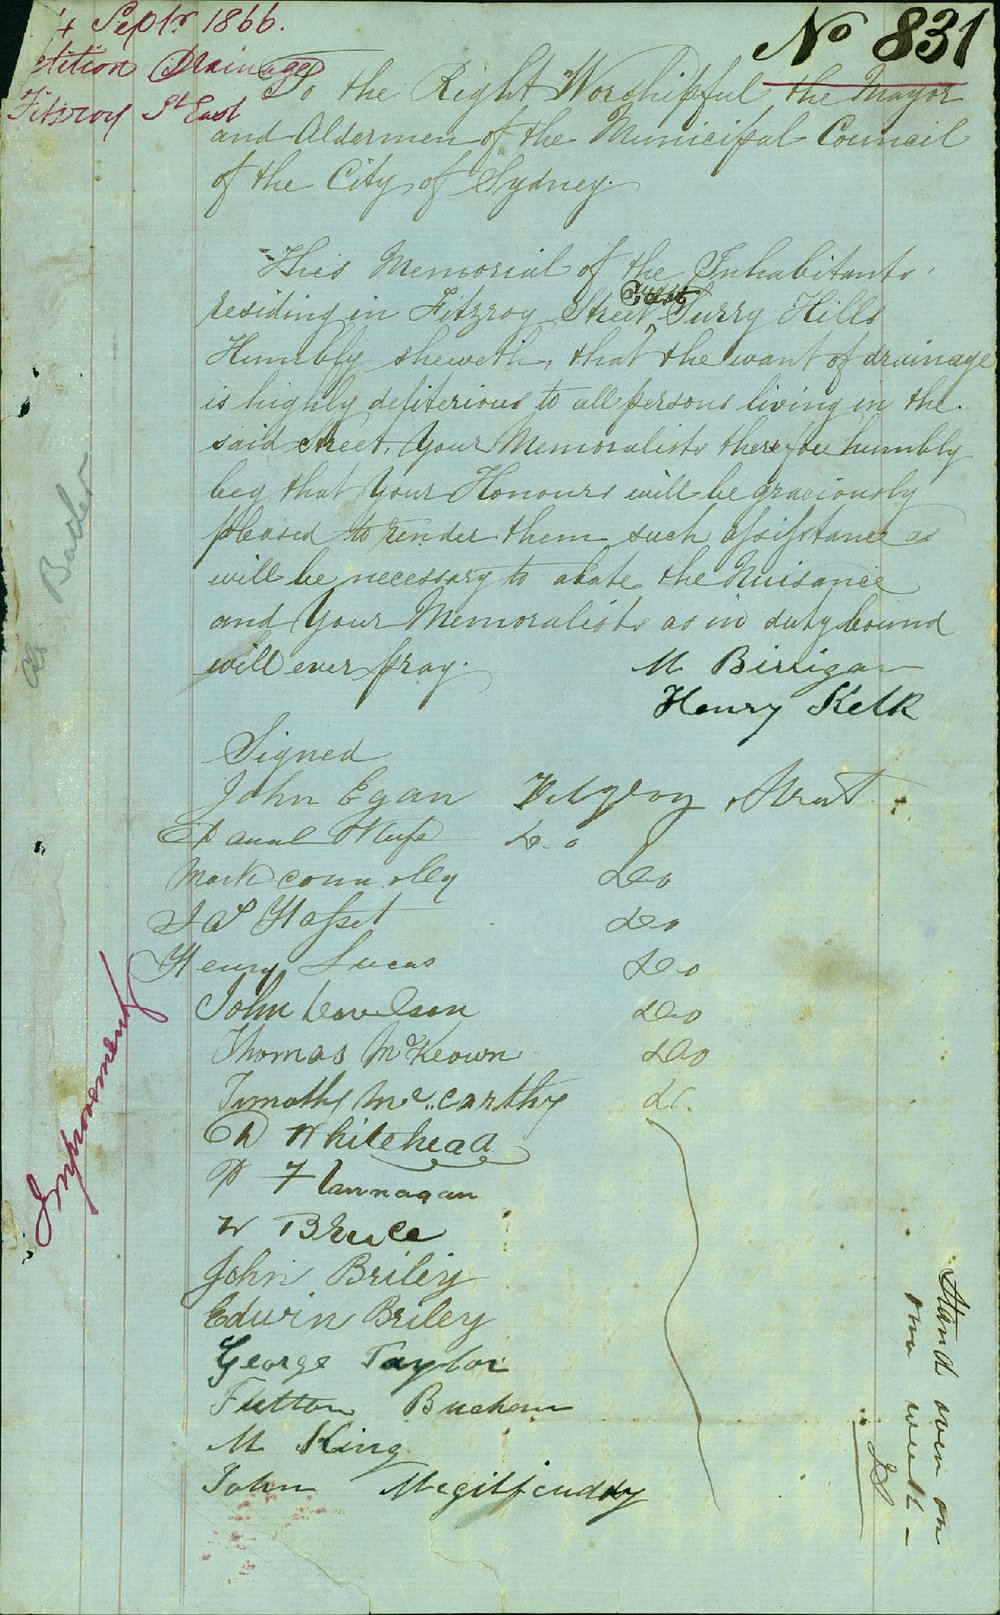 4 Septr 1866.
etition Drainage
Fitzroy St East
No 831
To the Right Worshipful the Mayor
and Aldermen of the Municipal Council
of the City of Sydney.
This Memorial of the Inhabitants
residing in Fitzroy Street East Surry Hills
Humbly sheweth, that the want of drainage
is highly deliterious to all persons living in the
said street. Your Memoralists therefore humbly
beg that Your Honours will be graciously
pleased to render them such assistance as
will be necessary to abate the Nuisance
and Your Memoralists as in duty bound
will ever pray.
M Birrigan
Henry Kelk
Signed
John Egan Fitzroy Street
Do
Mark Do
Hasset Do
Henry Lucas Do
John Do
Thomas McKeown Do
Timothy McCarthy Do
Whitehead
P Flannagan
W Bruce
John Briley
Edwin Briley
George Taylor
M King
John Mcgillicuddy
Improvement
Butler
Stand over on
one week -